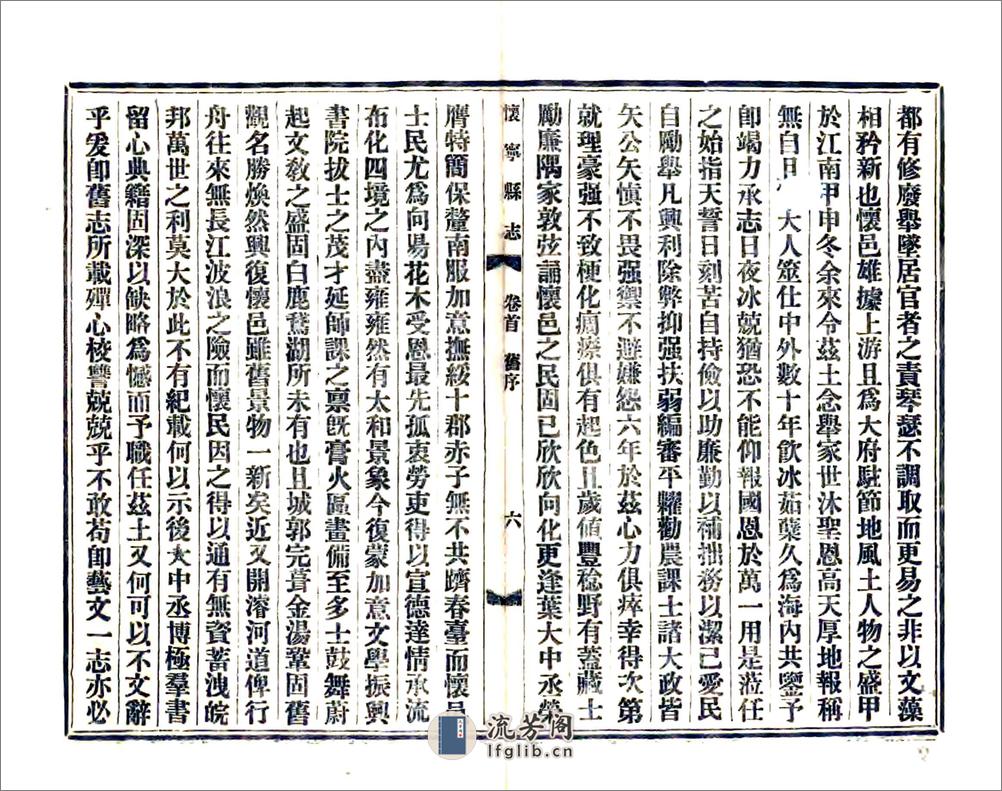 都有修廢舉墜居官者之責琴瑟不調取而更易之非以文藻
相矜新也懷邑雄據上游且爲大府駐節地風土人物之盛甲
於江南甲申冬余來令茲土念舉家世沐聖恩高天厚地報稱
無自 大人筮仕中外數十年飮冰茹蘗久爲海內共鑒予
卽竭力承志日夜冰兢猶恐不能仰報國恩於萬一用是蒞任
之始指天誓日刻苦自持儉以助廉勤以補拙務以潔己愛民
自勵舉凡興利除弊抑强扶弱編審平糶勸農課士諸大政皆
矢公矢愼不畏强禦不避嫌怨六年於茲心力俱瘁幸得次第
就理豪强不致梗化痌瘝俱有起色且歲値豐稔野有蓋藏士
勵廉隅家敦弦誦懷邑之民固已欣欣向化更逢葉大中丞榮
懷寧縣志 卷首 舊序 六
膺特簡保釐南服加意撫綏十郡赤子無不共躋春臺而懷邑
士民尤爲向昜花木受恩最先孤衷勞吏得以宣德達情承流
布化四境之內盡雍雍然有太和景象今復蒙加意文學振興
書院拔士之茂才延師課之禀旣膏火區畫備至多士鼓舞蔚
起文敎之盛固白鹿鵞湖所未有也且城郭完葺金湯鞏固舊
觀名勝煥然興復懷邑雖舊景物一新矣近又開濬河道俾行
舟往來無長江波浪之險而懷民因之得以通有無資蓄洩皖
邦萬世之利莫大於此不有紀載何以示後大中丞博極羣書
留心典籍固深以缺略爲憾而予職任茲土又何可以不文辭
乎爰卽舊志所載殫心校讐兢兢乎不敢苟卽藝文一志亦必
流芳阁
lfglib.cn